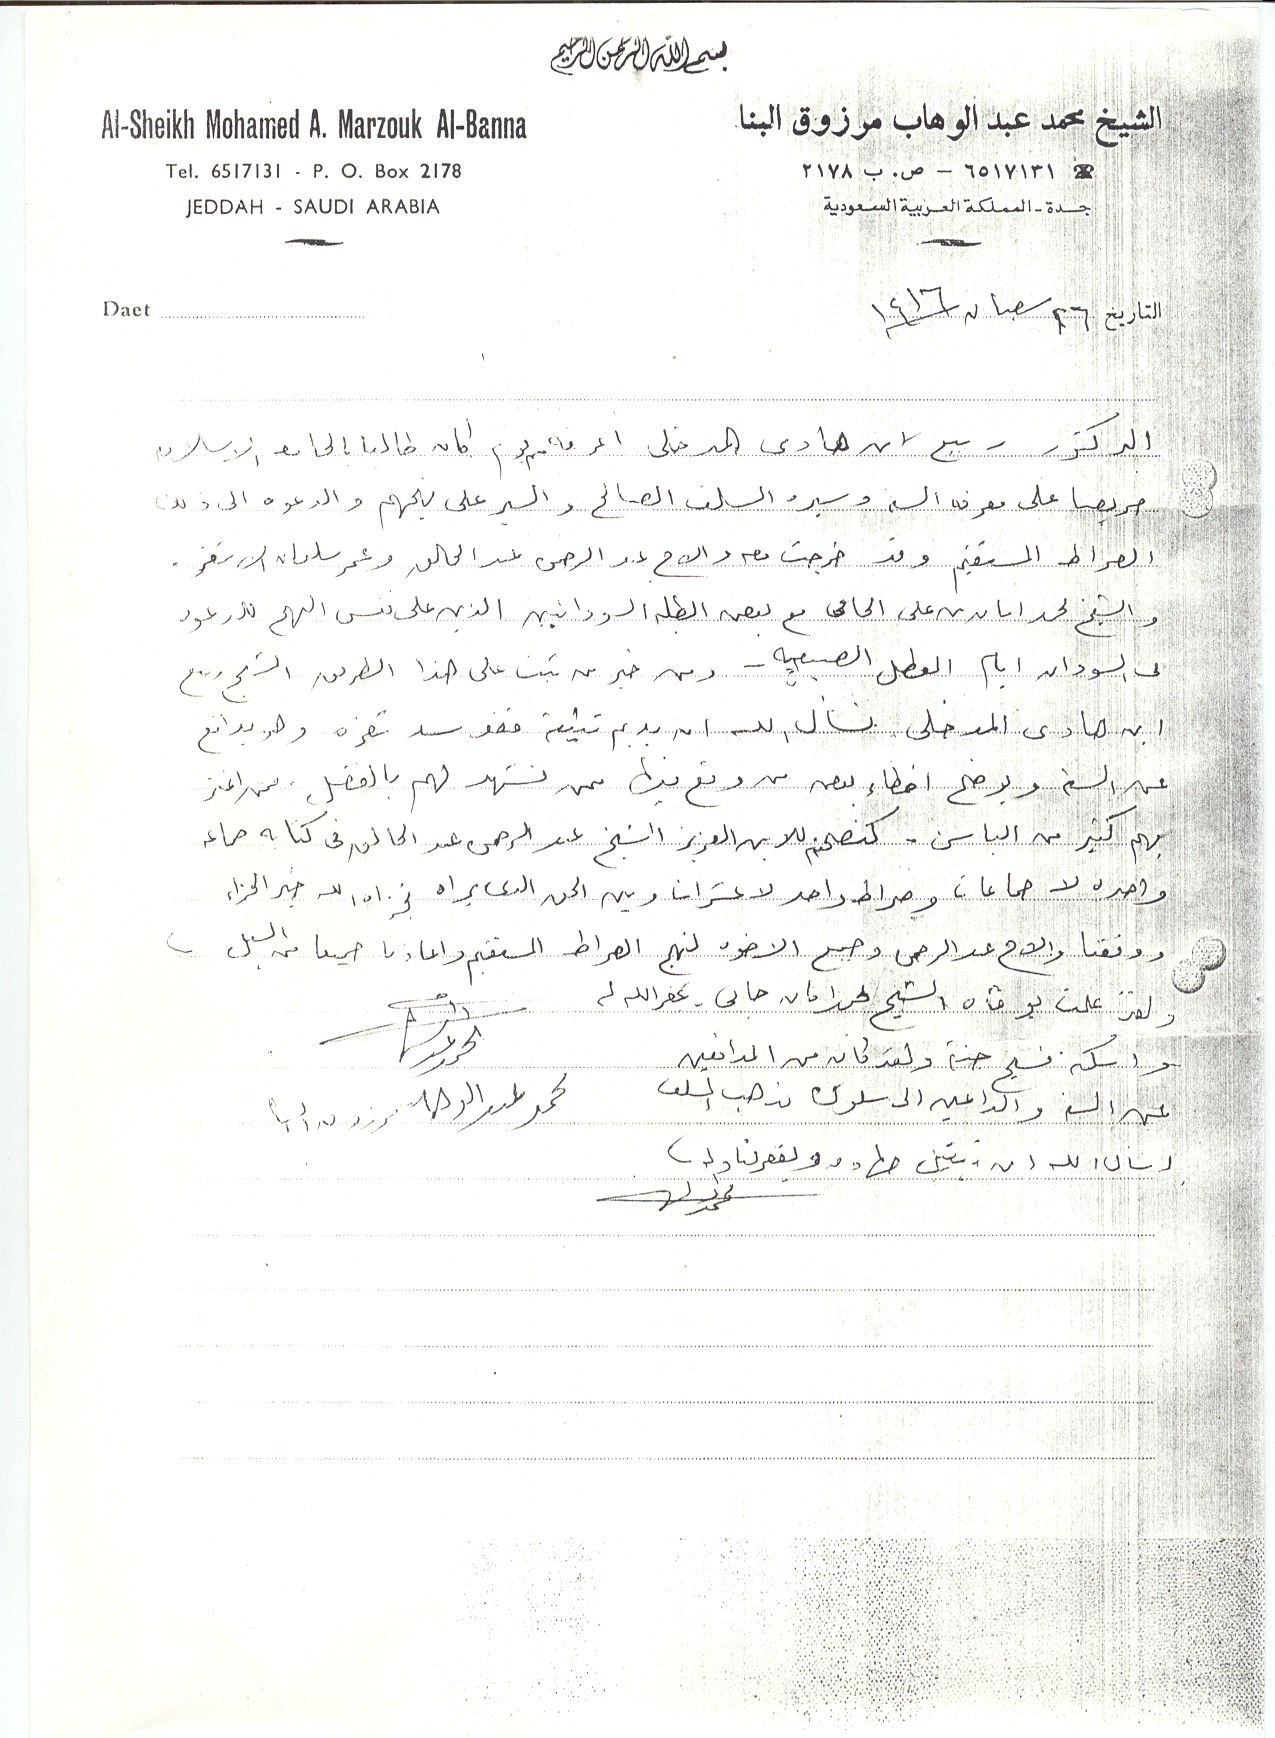 بسم الله الرحمن الرحيم
Al-Sheikh Mohamed A. Marzouk Al-Banna
Tel. 6517131 - P. O. Box 2178
JEDDAH - SAUDI ARABIA
الشيخ محمد عبد الوهاب مرزوق البنا
☎ ٦٥١٧١٣١ – ص. ب ٢١٧٨
جدة - المملكة العربية السعودية
Daet
التاريخ ٢٦ شعبان ١٤١٦
الدكتور ربيع ابن هادى المدخلى اعرفه يوم كان طالبا بالجامعه الاسلاميه
حريصا على معرفه السنه وسيره السلف الصالح والسير على نهجهم والدعوه الى ذلك
الصراط المستقيم وقد خرجت معه والاخ عبد الرحمن عبد الخالق وعمر سليمان الاشقر .
والشيخ محمد امان بن على الجامى مع بعض الطلبه السودانيين الذين على نفس النهج للدعوه
فى السودان ايام العطل الصيفيه – ومن خير من ثبت على هذا الطريق الشيخ ربيع
ابن هادى المدخلى نسأل الله ان يديم تثبيته فقد سد ثغره وهو يدافع
عن السنه ويوضح اخطاء بعض من وقع فيها ممن نشهد لهم بالفضل . ممن اغتر
بهم كثير من الناس . كنصحه للابن العزيز الشيخ عبد الرحمن عبد الخالق فى كتابه جماعه
واحده لا جماعات وصراط واحد لا عشرات وبين الحق الذى يراه فجزاه الله خير الجزاء
ووفقنا والاخ عبد الرحمن وجميع الاخوه لنهج الصراط المستقيم واعاذنا جميعا من السبل )
ولقد علمت بوفاه الشيخ محمد امان جامى - غفر الله له
واسكنه فسيح جنته ولقد كان من المدافعين
عن السنه والداعين الى سلوك مذهب السلف
محمد عبد الوهاب مرزوق البنا
اسأل الله ان يتقبل جهاده ويغفر لنا وله )